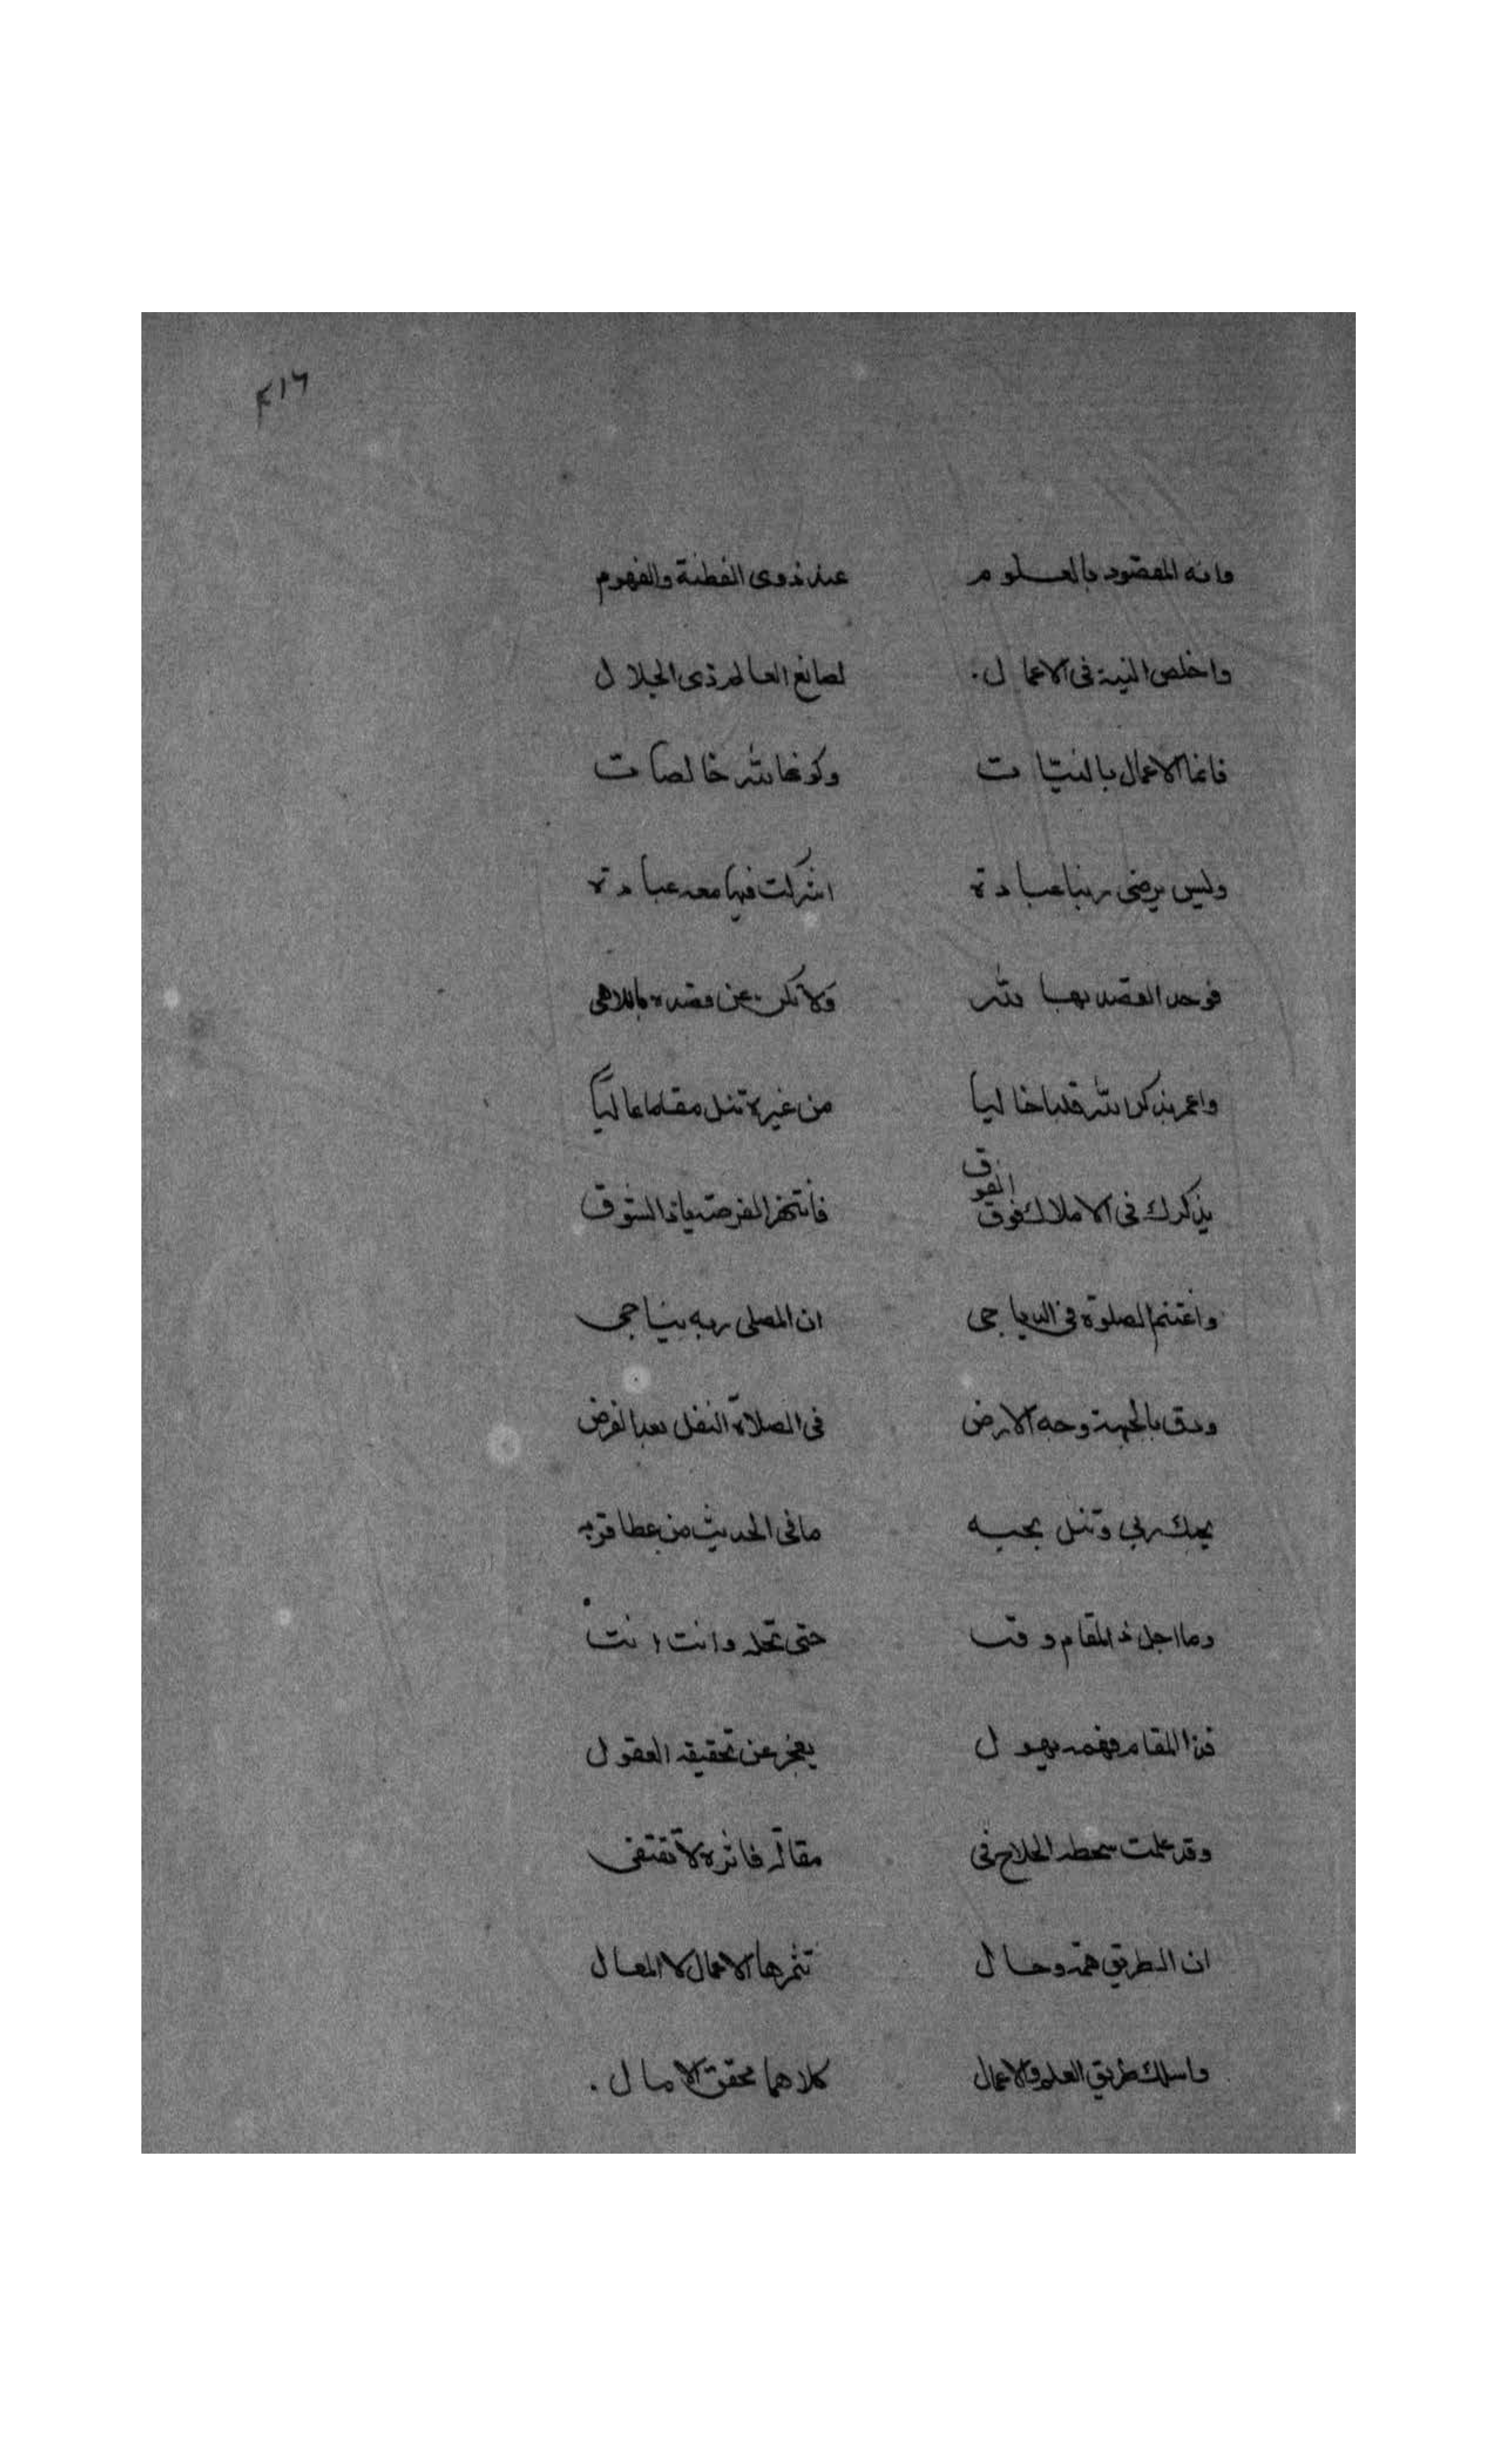 ٢١٦
وانه المقصود بالعلوم عند ذوى الفطنة والفهوم
واخلص النية فى الاعمال لصانع العالم ذى الجلال
فانما الاعمال بالنيات وكونها لله خالصات
وليس يرضى ربنا عبادة اشركت فيها معه عباده
فوحد القصد بها لله ولا تكن عن قصده باللاهى
واعمر بذكر الله قلبا خاليا من غيره تنل مقاما عاليا
يذكرك فى الاملاك فوق الفوق فانتهز الفرصة ياذا الشوق
واغتنم الصلوة فى الدياجى ان المصلى ربه يناجى
ودق بالجبهة وجه الارض فى الصلاة النفل بعد الفرض
يحبك ربى وتنل بحبه مافى الحديث من عطا قربه
وما اجل ذا المقام وقتا حتى تحله وانت انت
فذا المقام فهمه يهول يعجز عن تحقيقه العقول
وقد علمت سحطه الحلاج فى مقاله فاثره لا تقتفى
ان الطريق همة وحال تثمرها الاعمال لا المقال
واسلك طريق العلم والاعمال كلاهما محقق الامال